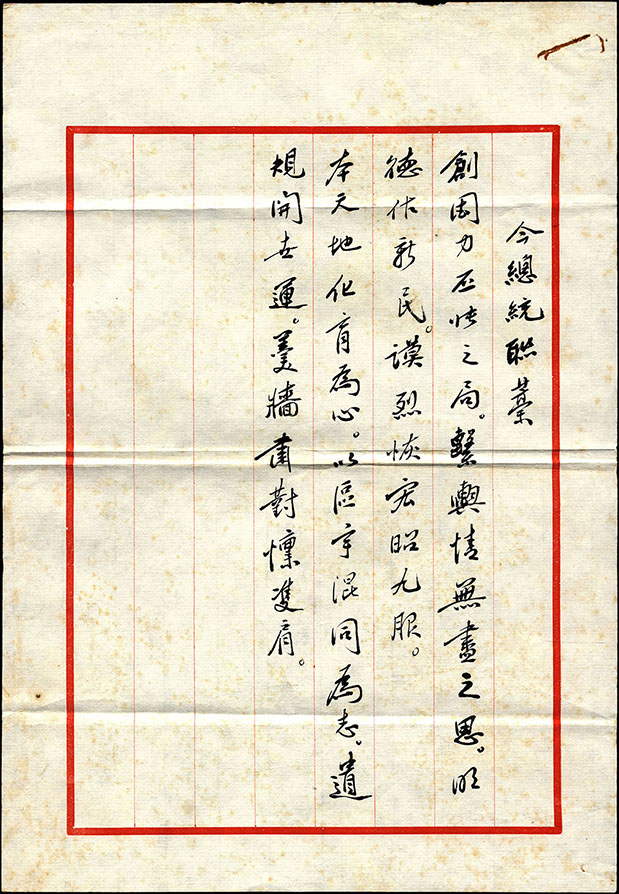 今總統聯藁
創力丕之局。繫輿情無盡之恩。明
德作新民。謨烈恢宏昭九服。
本天地化育為心。以區宇混同為志。遺
規開世運。羹牆肅對懍雙肩。